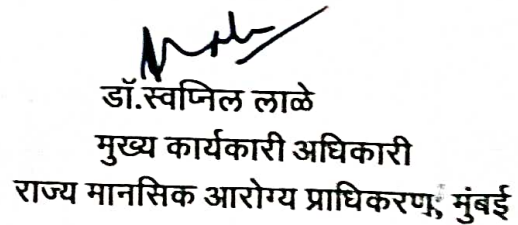 डॉ.स्वप्निल लाळे
मुख्य कार्यकारी अधिकारी
राज्य मानसिक आरोग्य प्राधिकरण, मुंबई